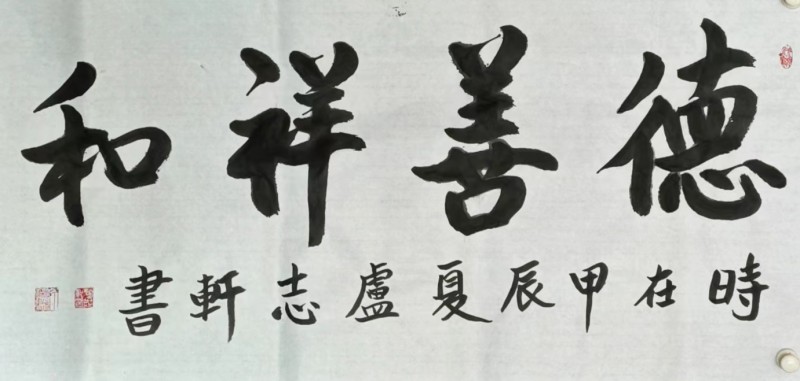 德善祥和
時在甲辰夏盧志軒書